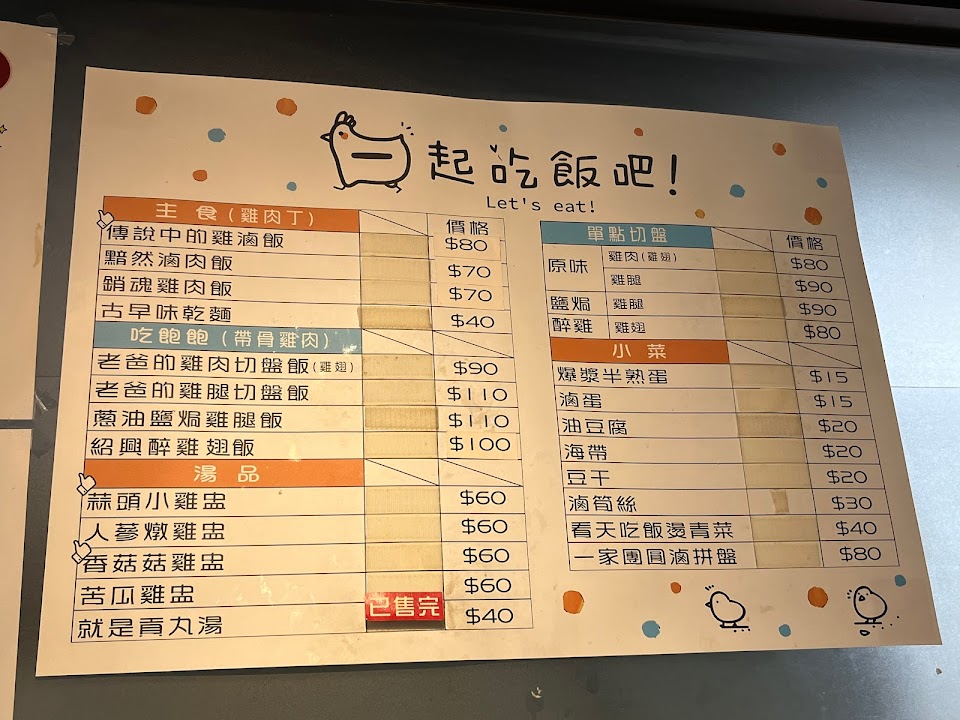 一起吃飯吧!
Let's eat!
主食(雞肉丁) 價格
傳說中的雞滷飯 $80
黯然滷肉飯 $70
銷魂雞肉飯 $70
古早味乾麵 $40
吃飽飽(帶骨雞肉)
老爸的雞肉切盤飯(雞翅) $90
老爸的雞腿切盤飯 $110
蔥油鹽焗雞腿飯 $110
紹興醉雞翅飯 $100
湯品
蒜頭小雞盅 $60
人蔘燉雞盅 $60
香菇菇雞盅 $60
苦瓜雞盅 $60
就是貢丸湯 已售完 $40
單點切盤 價格
原味 雞肉(雞翅) $80
雞腿 $90
鹽焗 雞腿 $90
醉雞 雞翅 $80
小菜
爆漿半熟蛋 $15
滷蛋 $15
油豆腐 $20
海帶 $20
豆干 $20
滷筍絲 $30
看天吃飯燙青菜 $40
一家團圓滷拼盤 $80